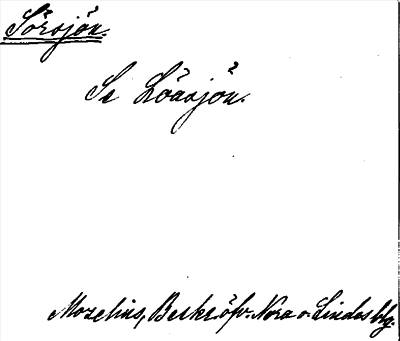 Sörsjön.
Se Löasjön.
Mozelius, Beskr. öfv. Nora o. Lindes blg.